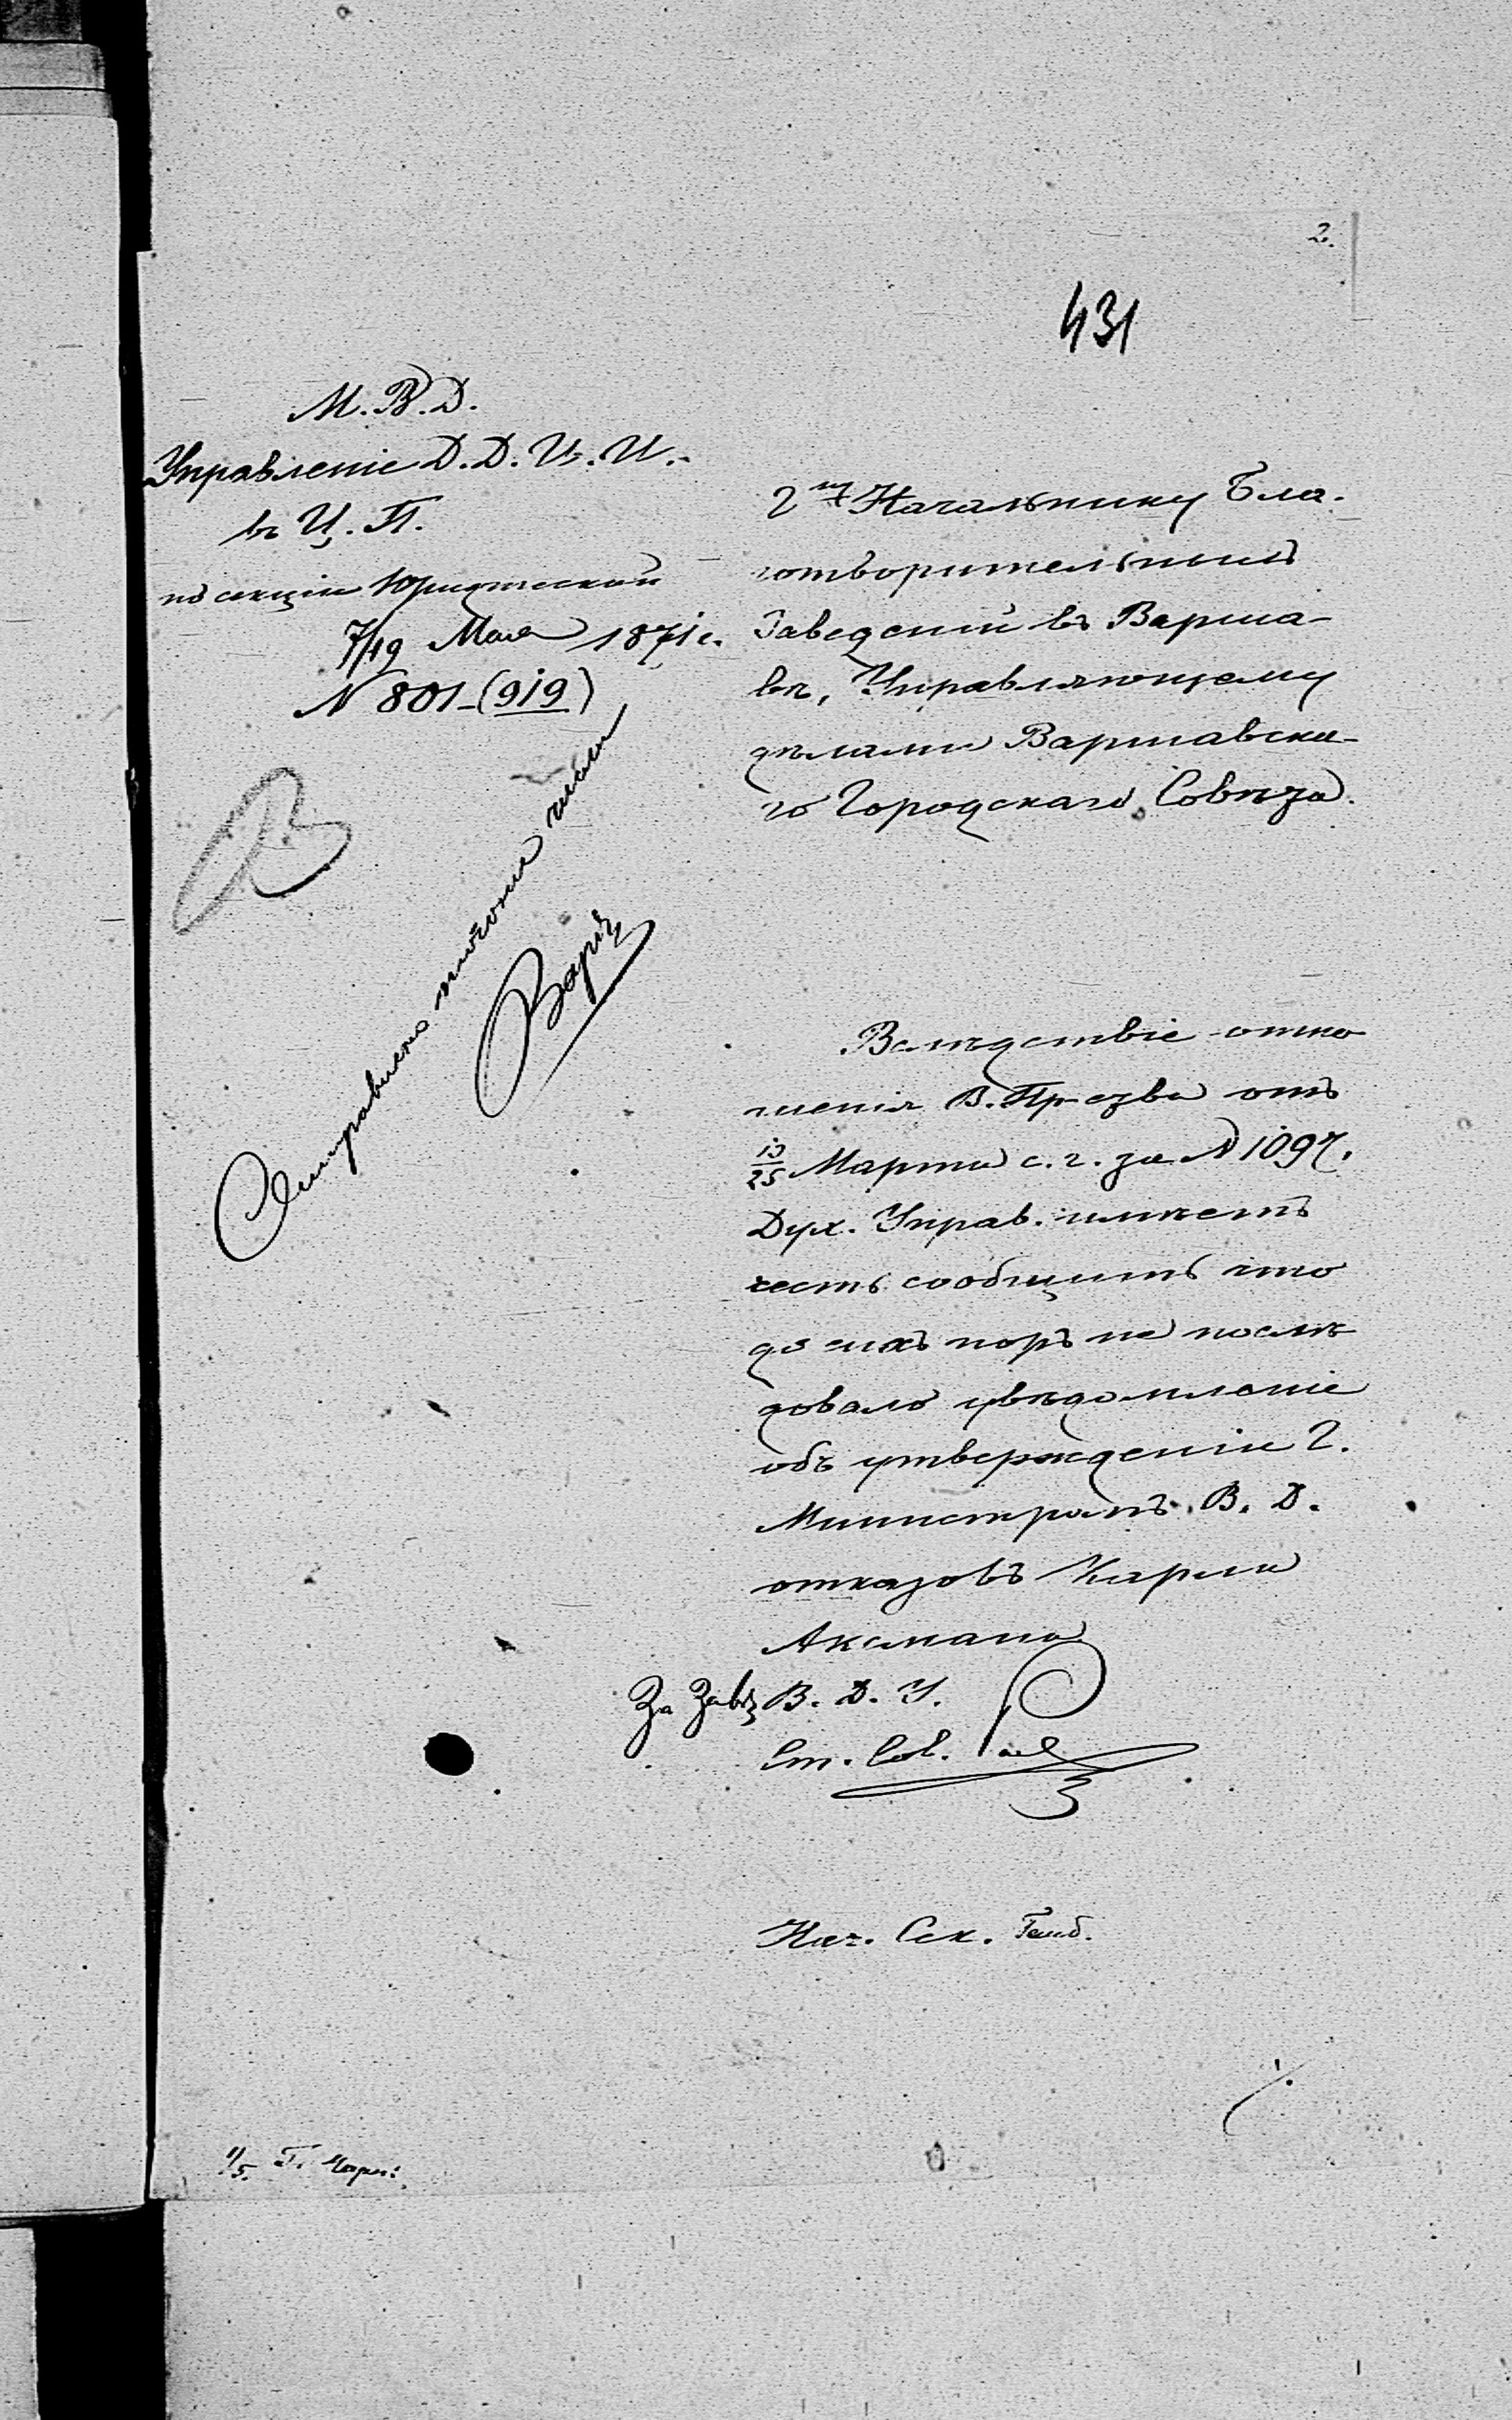 2.
431
М. В. Д.
Управленіе Д. Д. И. И.
въ Ц. П.
по секціи Юридической
7/19 Мая 1871 г.
N 801 - (919)
Отправлено числа
Гну Начальнику Бла-
готворительныхъ
Заведеній въ Варша-
вѣ, Управляющему
дѣлами Варшавска-
го Городскаго Совѣта.
Вслѣдствіе отно
шенія В. Пр-ства отъ
13/25 Марта с. г. за N 1097.
Дух. Управ. имѣетъ
честь сообщить что
до сихъ поръ не послѣ
довало увѣдомленіе
объ утвержденіи Г.
Министромъ В. Д.
отказовъ Карла
Аксмана
За Завѣд В. Д. У.
Ст. Сов.
Нач. Сек.